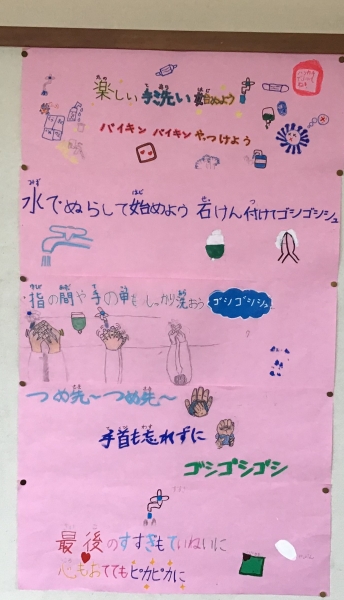 楽しい手洗い始めよう
バイキンバイキンやっつけよう
水でぬらして始めよう 石けん付けてゴシゴシシュ
指の間や手の甲もしっかり洗おう ゴシゴシシュ
つめ先〜つめ先〜
手首も忘れずに
ゴシゴシゴシ
最後のすすぎもていねいに
心もおててもピカピカに